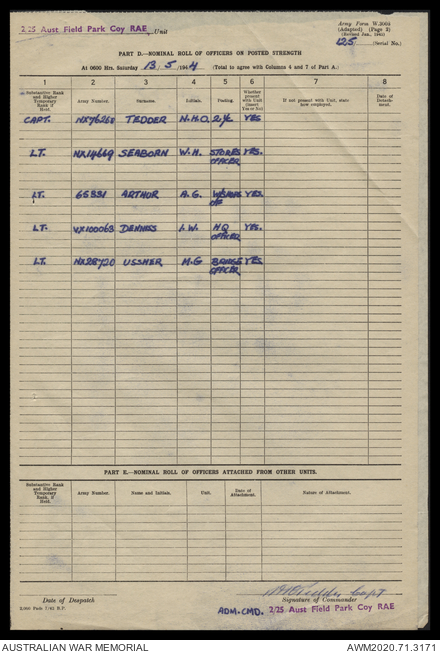 2/25 Aust Field Park Coy RAE Unit
Army Form W.3008
(Adapted) (Page 2)
(Revised Jan., 1943)
125 (Serial No.)
PART D.—NOMINAL ROLL OF OFFICERS ON POSTED STRENGTH
At 0600 Hrs. Saturday 13/5/1944 (Total to agree with Columns 4 and 7 of Part A.)
1 2 3 4 5 6 7 8
Substantive Rank and Higher Temporary Rank if Held. Army Number. Surname. Initials. Posting. Whether present with Unit (insert Yes or No). If not present with Unit, state how employed. Date of Detachment.
CAPT. TEDDER N.H.O. 2 i/c YES
LT. NX14669 SEABORN W.H. STORES OFFICER YES.
LT. 65331 ARTHUR A.G. YES.
LT. VX100063 DENNESS I.W. HQ OFFICER YES.
LT. NX28720 USSHER M.G BRIDGE OFFICER YES
PART E.—NOMINAL ROLL OF OFFICERS ATTACHED FROM OTHER UNITS.
Substantive Rank and Higher Temporary Rank, if Held. Army Number. Name and Initials. Unit. Date of Attachment. Nature of Attachment.
Capt
Date of Despatch
Signature of Commander
ADM. CMD. 2/25 Aust Field Park Coy RAE
AUSTRALIAN WAR MEMORIAL
AWM2020.71.3171